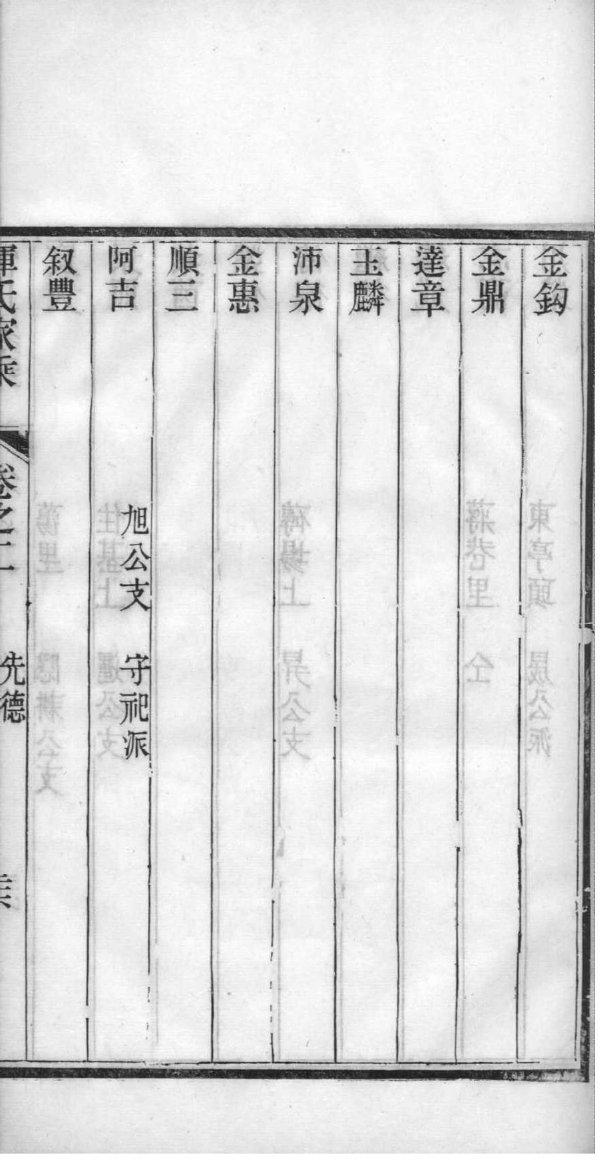 金鈎
金鼎
達章
玉麟
沛泉
金惠
順三
阿吉 旭公支 守祀派
叙豐
惲氏家乘 卷之二 先德